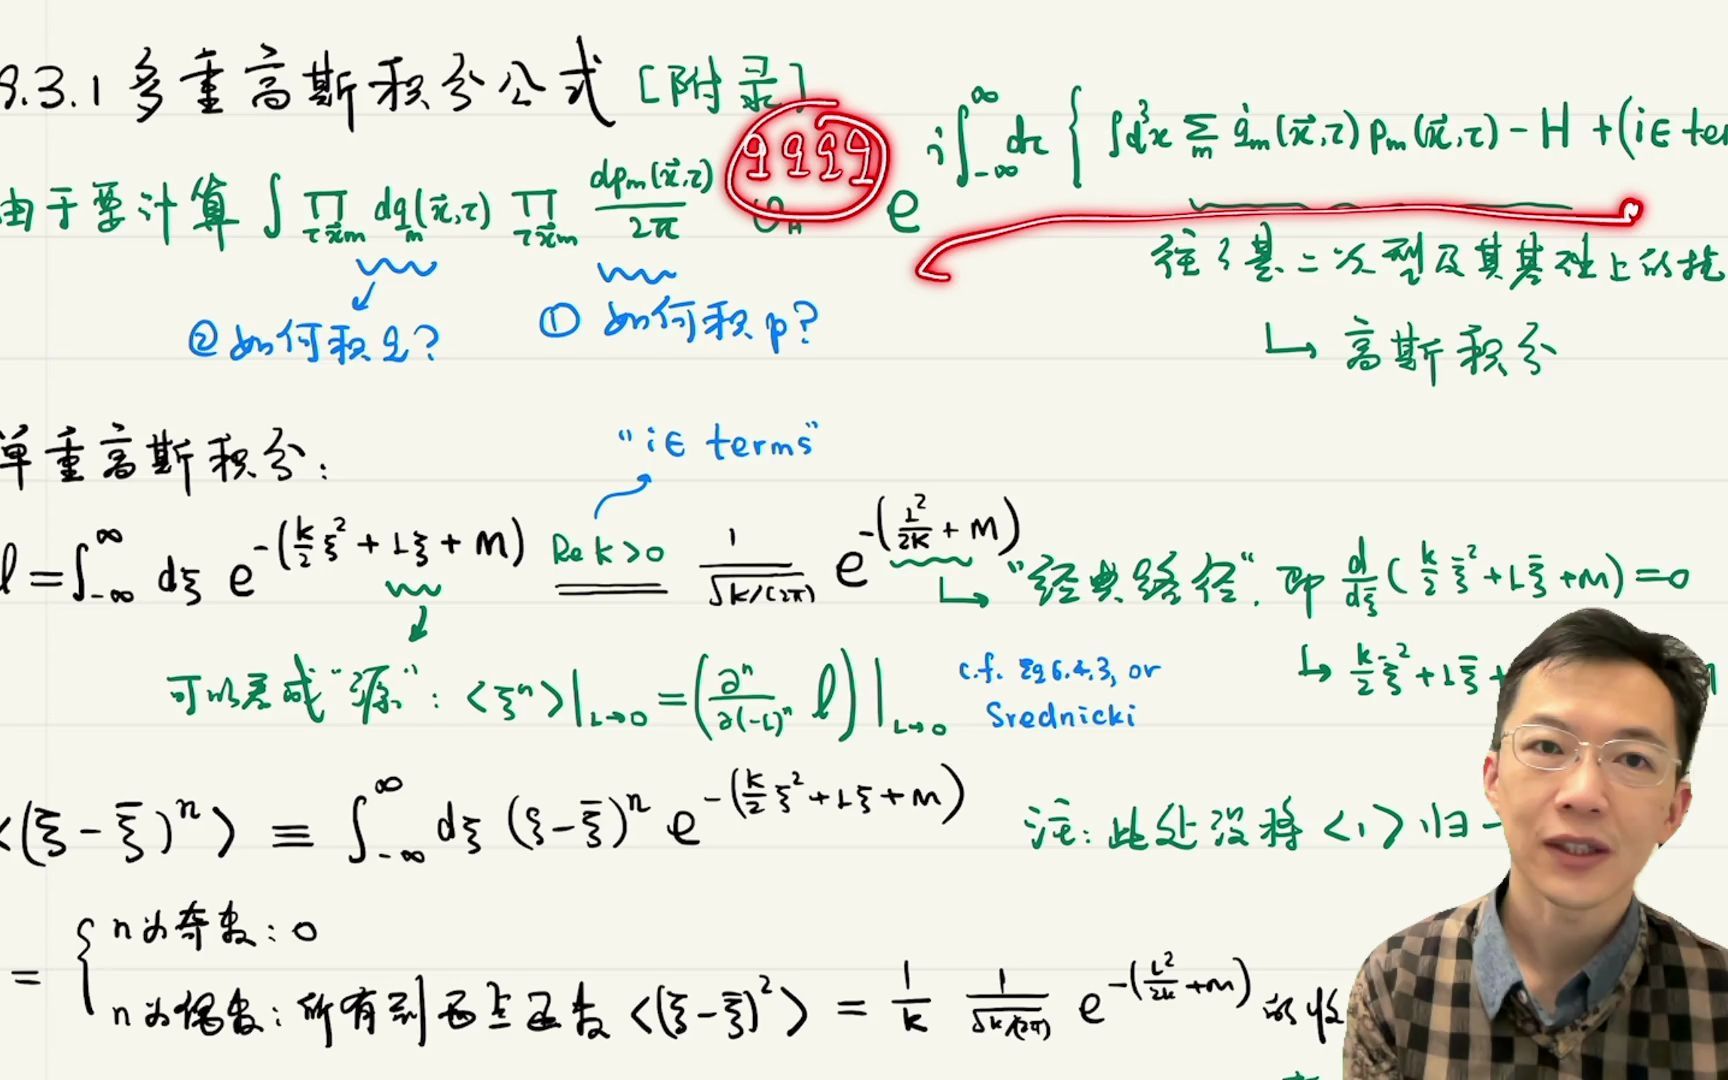 9.3.1 多重高斯积分公式 [附录]
由于要计算 ∫ ∏_{τ x⃗ m} dq_m(x⃗,τ) ∏_{τ x⃗ m} dp_m(x⃗,τ)/2π qqqq e^{i∫_{-∞}^{∞} dτ { ∫d³x Σ_m q̇_m(x⃗,τ) p_m(x⃗,τ) - H + (iε ter
往往是二次型及其基础上的
② 如何积 q?
① 如何积 p?
↳ 高斯积分
"iε terms"
单重高斯积分:
l = ∫_{-∞}^{∞} dξ e^{-(K/2 ξ² + Lξ + M)} Re K>0 = 1/√(K/(2π)) e^{-(L²/2K + M)}
↳ "经典路径", 即 d/dξ (K/2 ξ̄² + Lξ̄ + M) = 0
可以看成"源": <ξⁿ>|_{L→0} = (∂ⁿ/∂(-L)ⁿ l)|_{L→0}
c.f. Eq 6.4.3, or
Srednicki
↳ K/2 ξ̄² + Lξ̄ +
<(ξ-ξ̄)ⁿ> ≡ ∫_{-∞}^{∞} dξ (ξ-ξ̄)ⁿ e^{-(K/2 ξ² + Lξ + M)}
注: 此处没将 <1> 归一
= { n为奇数: 0
n为偶数: 所有到两点函数 <(ξ-ξ̄)²> = 1/K 1/√(K/(2π)) e^{-(L²/2K + M)} 的收